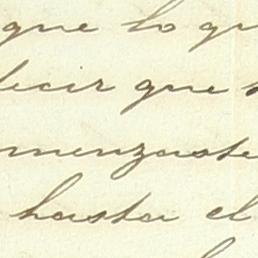 que lo qu
decir que
menzaste
hasta el